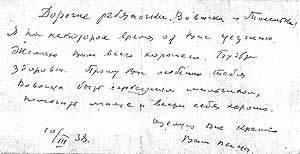 Дорогие ребятошки, Вовочка и
Я на некоторое время от Вас уезжаю.
Желаю Вам всего хорошего. Будьте
здоровы. Прошу Вас особенно тебя
Вовочка быть хорошим мальчиком,
помогать маме и вести себя хорошо.
Целую Вас крепко
Ваш папа.
10/III 38.